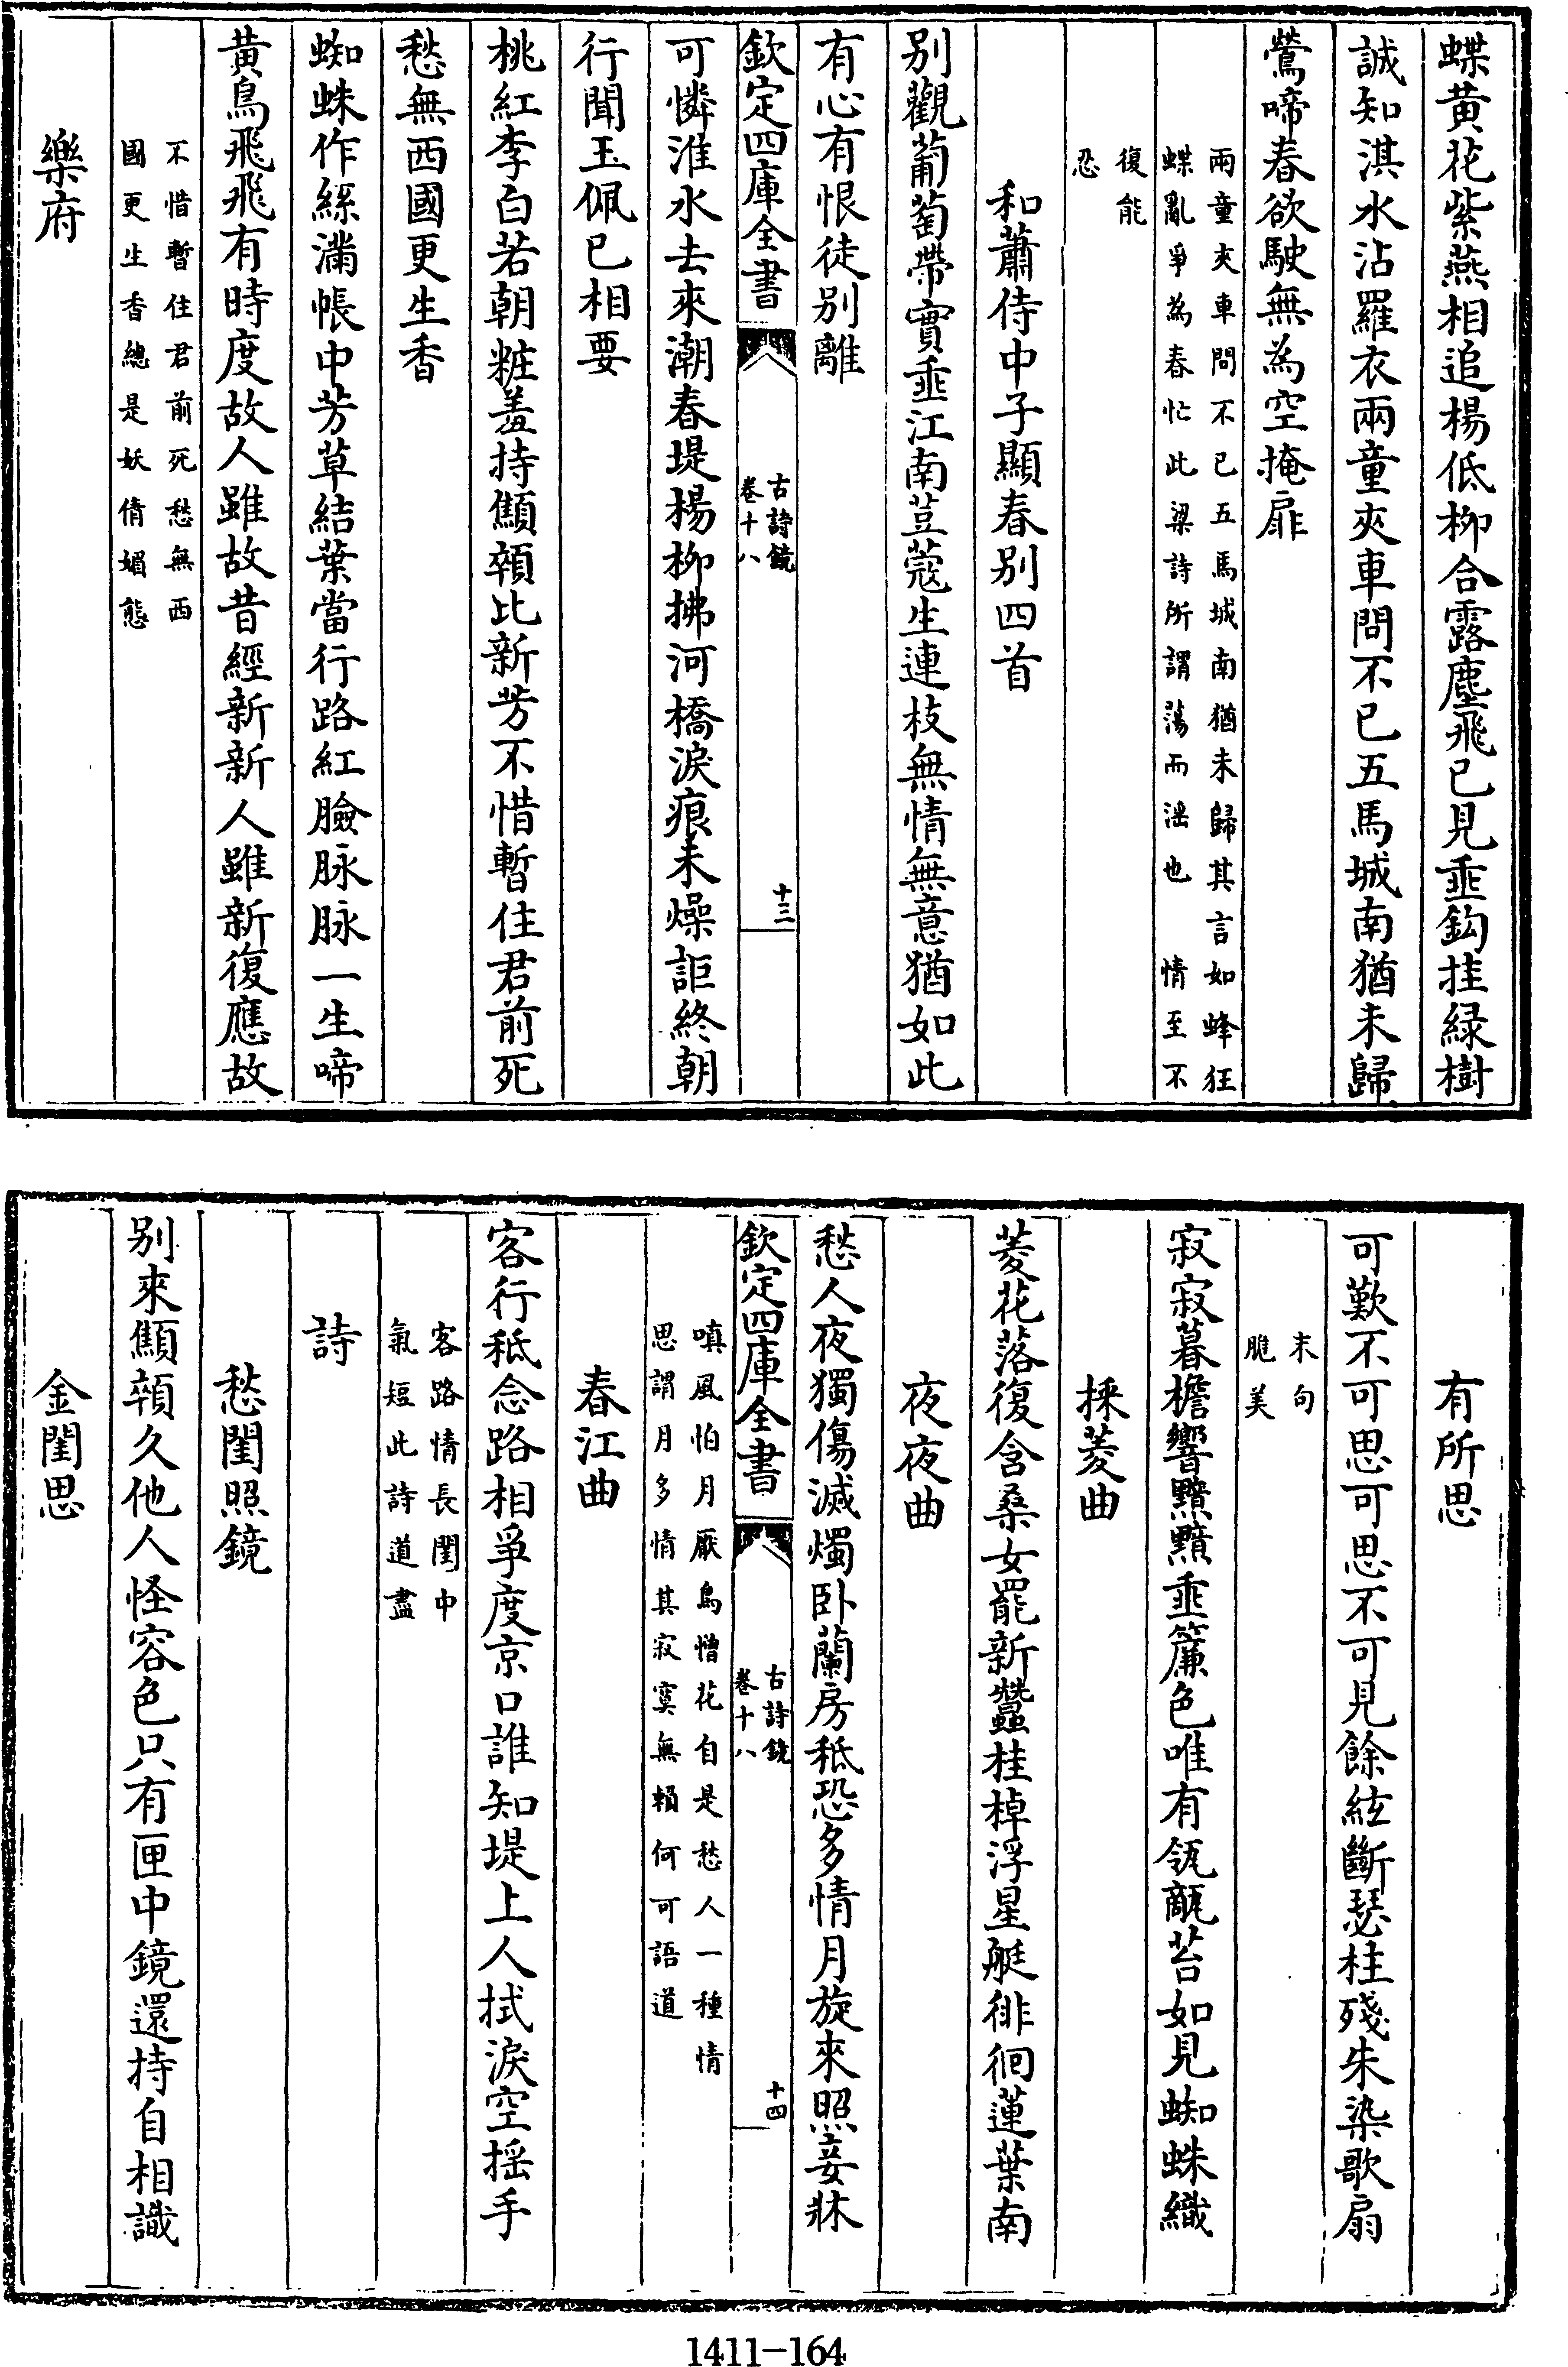 蝶黄花紫燕相追楊低栁合露塵飛已見垂鈎挂緑樹
誠知淇水沾羅衣兩童夾車問不已五馬城南猶未歸
鶯啼春欲駛無為空掩扉
兩童夾車問不已五馬城南猶未歸其言如蜂狂
蝶亂爭為春忙此梁詩所謂蕩而滛也　情至不
復能
忍
和蕭侍中子顯春别四首
别觀葡萄帶實垂江南荳蔻生連枝無情無意猶如此
有心有恨徒别離
欽定四庫全書
古詩鏡
卷十八
十三
可憐淮水去來潮春堤楊栁拂河橋淚痕未燥詎終朝
行聞玉佩已相要
桃紅李白若朝粧羞持顦顇比新芳不惜暫住君前死
愁無西國更生香
蜘蛛作絲滿帳中芳草結葉當行路紅臉脉脉一生啼
黄鳥飛飛有時度故人雖故昔經新新人雖新復應故
不惜暫住君前死愁無西
國更生香總是妖倩媚態
樂府
有所思
可歎不可思可思不可見餘絃斷瑟柱殘朱染歌扇
末句
脆美
寂寂暮檐響黯黯垂簾色唯有瓴甋苔如見蜘蛛織
採菱曲
菱花落復含桑女罷新蠶桂棹浮星艇徘徊蓮葉南
夜夜曲
愁人夜獨傷滅燭卧蘭房秪恐多情月旋來照妾牀
欽定四庫全書
古詩鏡
卷十八
十四
嗔風怕月厭鳥憎花自是愁人一種情
思謂月多情其寂寞無賴何可語道
春江曲
客行秪念路相爭度京口誰知堤上人拭淚空摇手
客路情長閨中
氣短此詩道盡
詩
愁閨照鏡
别來顦顇久他人怪容色只有匣中鏡還持自相識
金閨思
1411-164